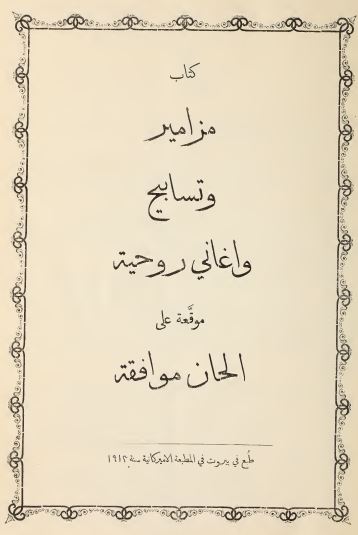 كتاب
مزامير
وتسابيح
واغاني روحية
موقَّعة على
الحان موافقة
طُبع في بيروت في المطبعة الاميركانية سنة ١٩١٢